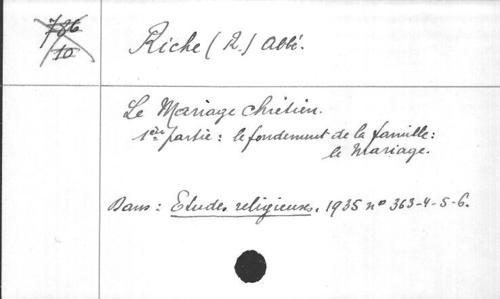 786
10
Riche (R.) Abbé.
Le Mariage chrétien.
1ère partie : le fondement de la famille :
le Mariage.
Dans : Etudes religieuses, 1935 n° 363-4-5-6.